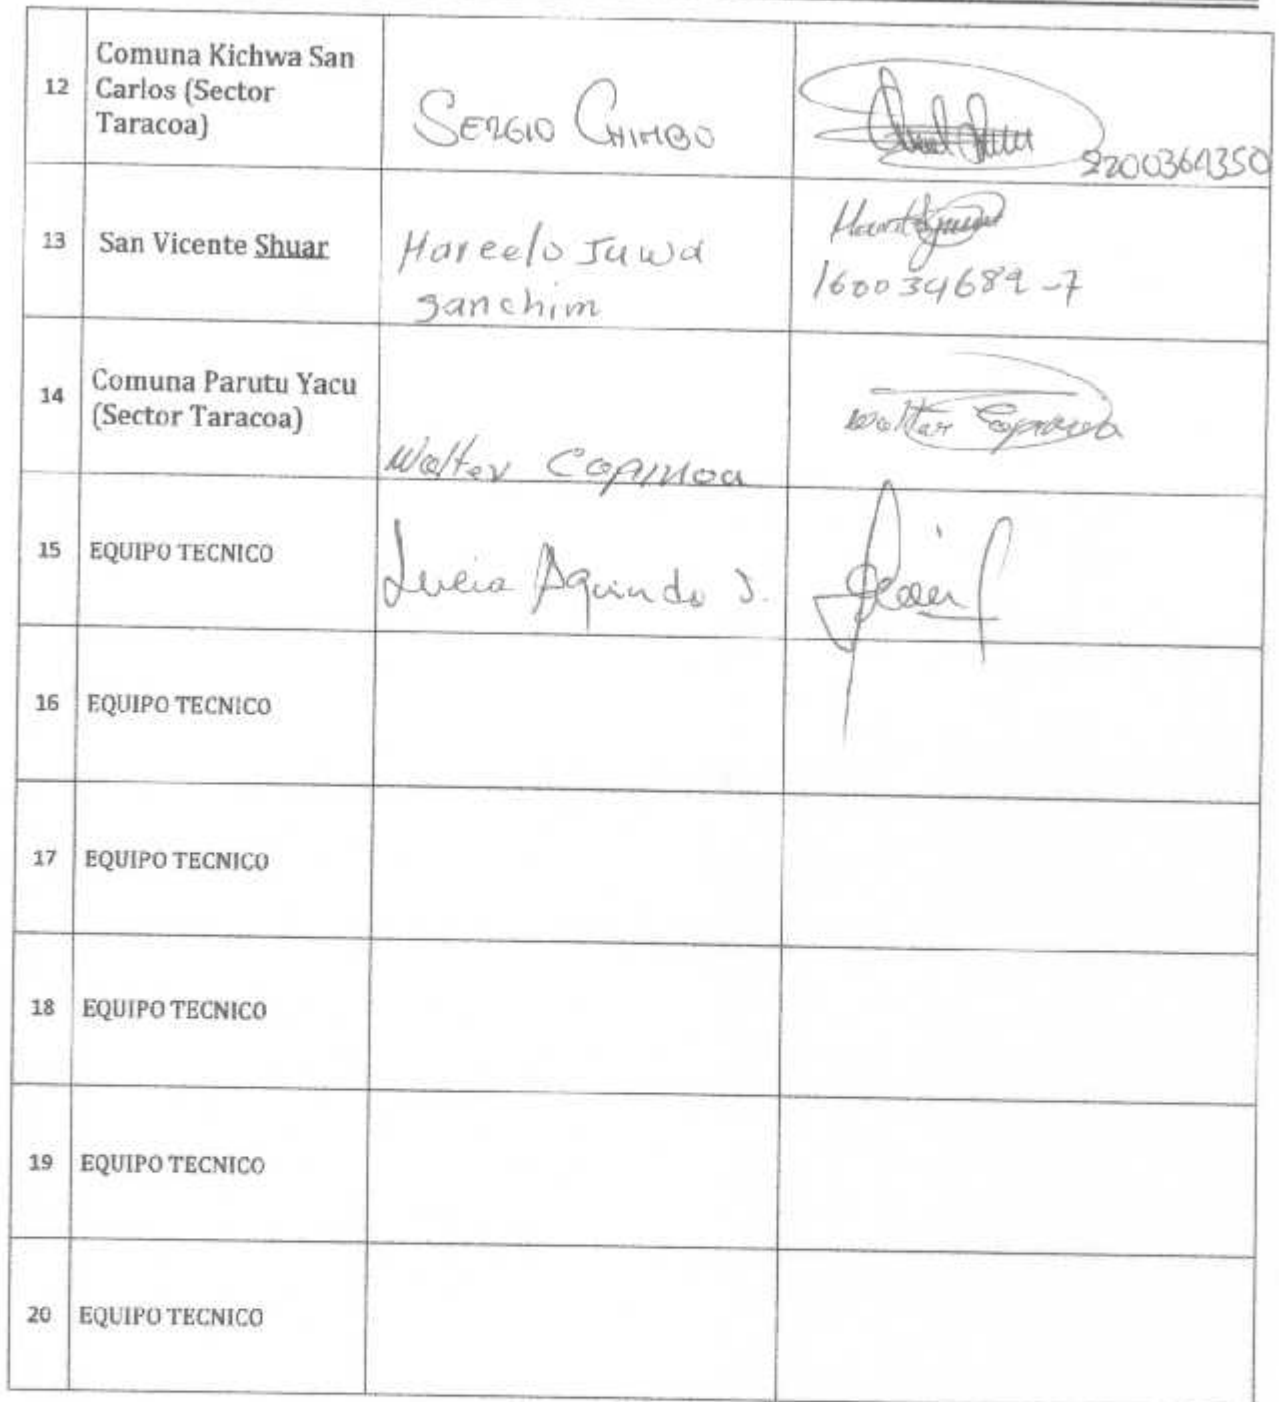 12 Comuna Kichwa San
Carlos (Sector
Taracoa)
SERGIO CHIMBO
2200361350
13 San Vicente Shuar
Marcelo Juwa
Sanchim
160034689-7
14 Comuna Parutu Yacu
(Sector Taracoa)
Walter
Walter
15 EQUIPO TECNICO
Lucia Aguinda J.
16 EQUIPO TECNICO
17 EQUIPO TECNICO
18 EQUIPO TECNICO
19 EQUIPO TECNICO
20 EQUIPO TECNICO